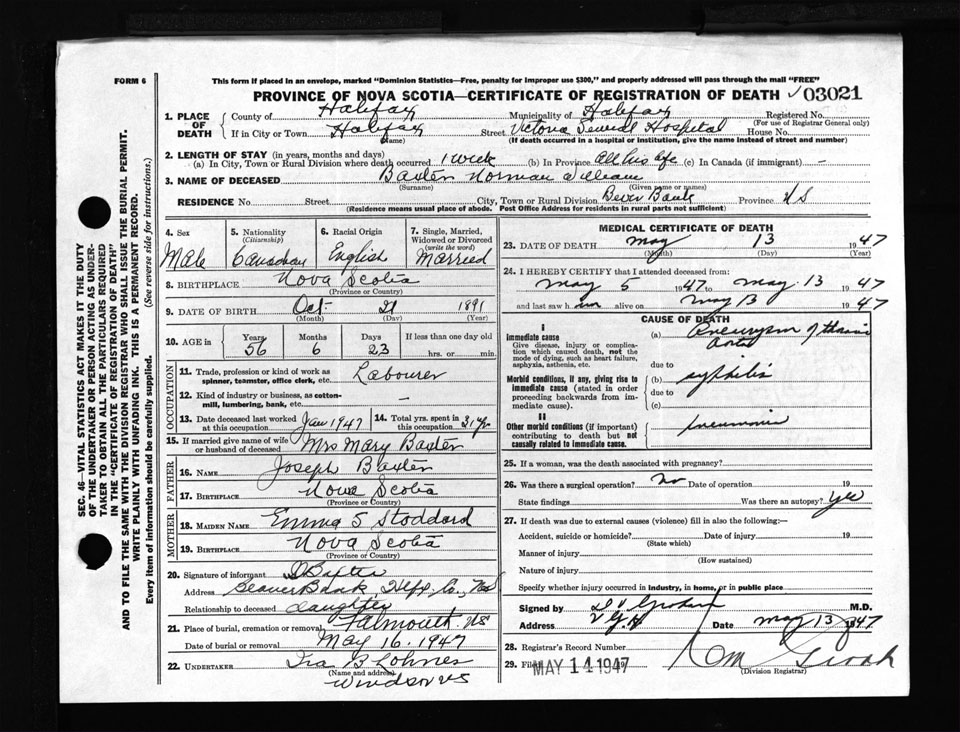 FORM 6
This form if placed in an envelope, marked "Dominion Statistics—Free, penalty for improper use $300," and properly addressed will pass through the mail "FREE"
PROVINCE OF NOVA SCOTIA—CERTIFICATE OF REGISTRATION OF DEATH 03021
1. PLACE OF DEATH
County of Halifax Municipality of Halifax Registered No.
(For use of Registrar General only)
If in City or Town Halifax Street Victoria General Hospital House No.
(Name) (If death occurred in a hospital or institution, give the name instead of street and number)
2. LENGTH OF STAY (in years, months and days)
(a) In City, Town or Rural Division where death occurred 1 week (b) In Province all his life (c) In Canada (if immigrant) —
3. NAME OF DECEASED Baxter Norman William
(Surname) (Given name or names)
RESIDENCE No Street City, Town or Rural Division Bever Bank Province NS
(Residence means usual place of abode. Post Office Address for residents in rural parts not sufficient)
4. Sex Male
5. Nationality (Citizenship) Canadian
6. Racial Origin English
7. Single, Married, Widowed or Divorced (write the word) Married
8. BIRTHPLACE Nova Scotia
(Province or Country)
9. DATE OF BIRTH Oct. 21 1891
(Month) (Day) (Year)
10. AGE in Years 56 Months 6 Days 23 If less than one day old hrs. or min.
OCCUPATION
11. Trade, profession or kind of work as spinner, teamster, office clerk, etc. Labourer
12. Kind of industry or business, as cotton-mill, lumbering, bank, etc. —
13. Date deceased last worked at this occupation Jan 1947
14. Total yrs. spent in this occupation 31 yr
15. If married give name of wife or husband of deceased Mrs Mary Baxter
FATHER
16. NAME Joseph Baxter
17. BIRTHPLACE Nova Scotia
(Province or Country)
MOTHER
18. MAIDEN NAME Emma S Stoddard
19. BIRTHPLACE Nova Scotia
(Province or Country)
20. Signature of informant Baxter
Address Beaver Bank, Hfx. Co., NS
Relationship to deceased daughter
21. Place of burial, cremation or removal Falmouth NS
Date of burial or removal May 16, 1947
22. UNDERTAKER Ira B Lohnes
(Name and address)
Windsor NS
MEDICAL CERTIFICATE OF DEATH
23. DATE OF DEATH May 13 1947
(Month) (Day) (Year)
24. I HEREBY CERTIFY that I attended deceased from:
May 5 1947 to May 13 1947
and last saw him alive on May 13 1947
CAUSE OF DEATH
I
Immediate cause
Give disease, injury or complication which caused death, not the mode of dying, such as heart failure, asphyxia, asthenia, etc.
(a) Aneurysm of thoracic aorta
due to
Morbid conditions, if any, giving rise to immediate cause (stated in order proceeding backwards from immediate cause).
(b) syphilis
due to
(c)
II
Other morbid conditions (if important) contributing to death but not causally related to immediate cause.
pneumonia
25. If a woman, was the death associated with pregnancy?
26. Was there a surgical operation? No Date of operation 19
State findings Was there an autopsy? Yes
27. If death was due to external causes (violence) fill in also the following:—
Accident, suicide or homicide? Date of injury 19
(State which)
Manner of injury
(How sustained)
Nature of injury
Specify whether injury occurred in industry, in home, or in public place
Signed by M.D.
Address V G H Date May 13 1947
28. Registrar's Record Number
29. Filed MAY 14 1947
(Division Registrar)
SEC. 46—VITAL STATISTICS ACT MAKES IT THE DUTY
OF THE UNDERTAKER OR PERSON ACTING AS UNDER-
TAKER TO OBTAIN ALL THE PARTICULARS REQUIRED
IN THE "CERTIFICATE OF REGISTRATION OF DEATH"
AND TO FILE THE SAME WITH THE DIVISION REGISTRAR WHO SHALL ISSUE THE BURIAL PERMIT.
WRITE PLAINLY WITH UNFADING INK. THIS IS A PERMANENT RECORD.
Every item of information should be carefully supplied. (See reverse side for instructions.)